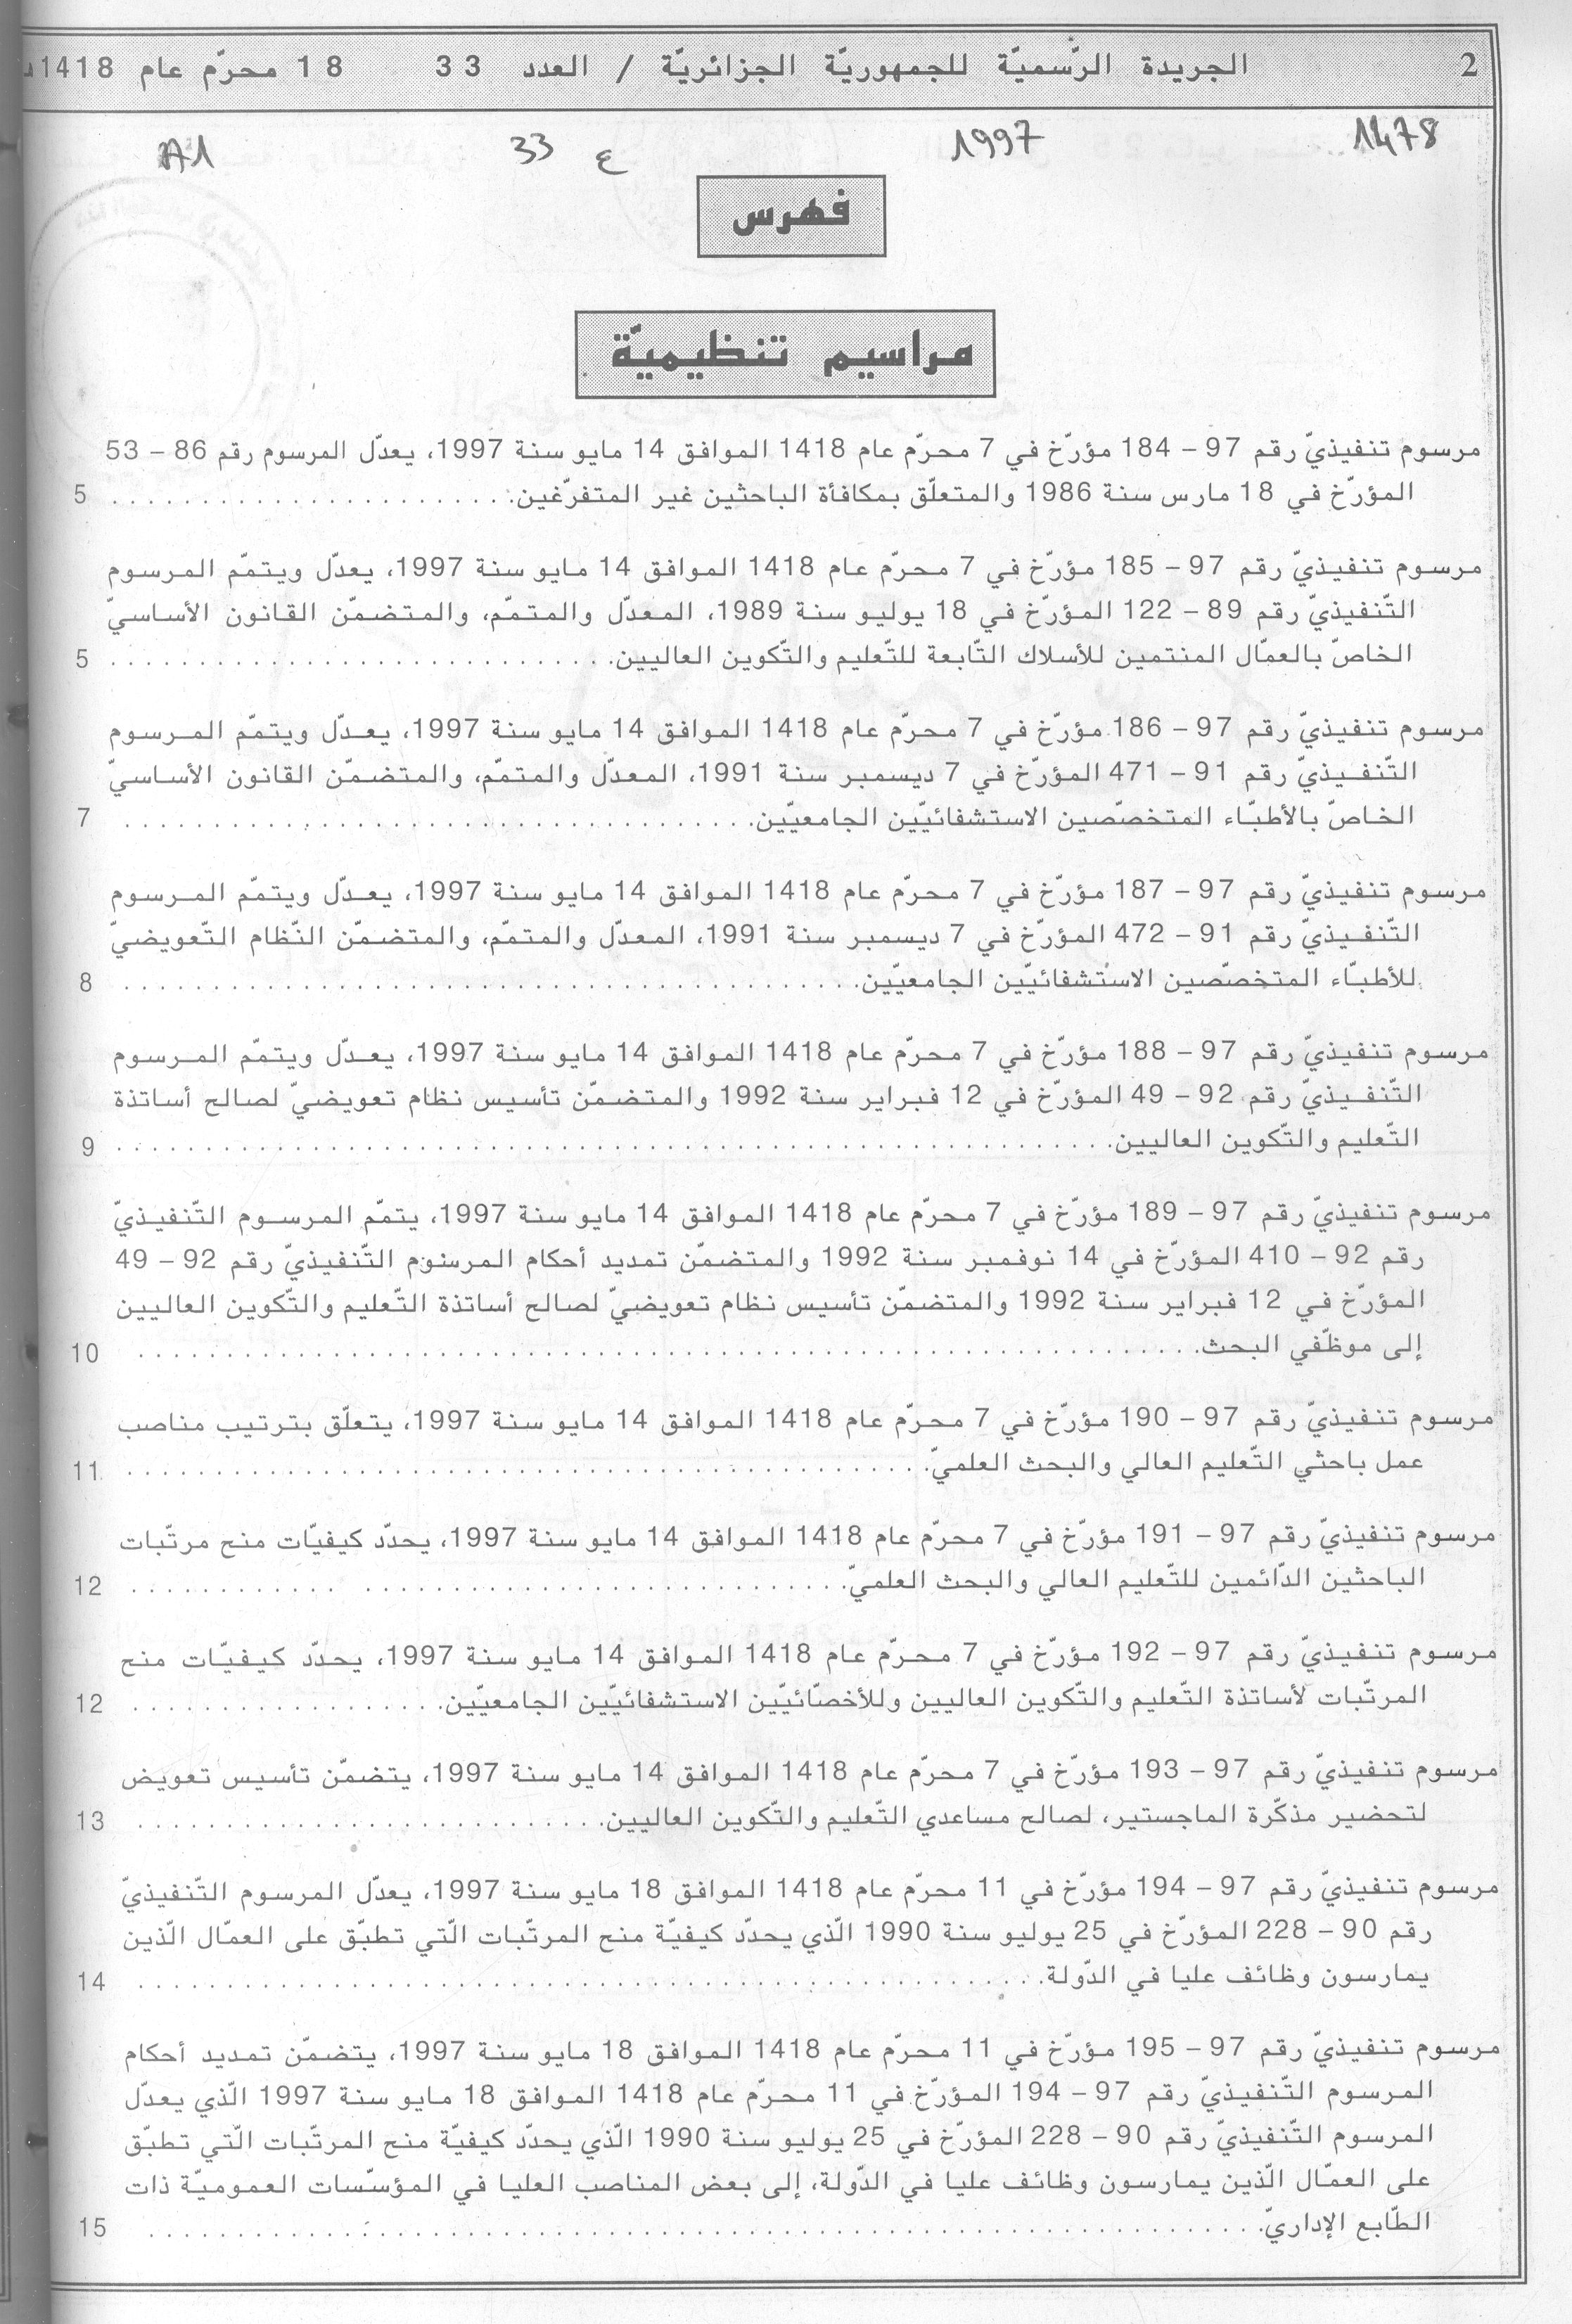 2 الجريدة الرّسميّة للجمهوريّة الجزائريّة / العدد 33 18 محرّم عام 1418هـ
1478 1997 ع 33 A1
فهرس
مراسيم تنظيميّة
مرسوم تنفيذيّ رقم 97 – 184 مؤرّخ في 7 محرّم عام 1418 الموافق 14 مايو سنة 1997، يعدّل المرسوم رقم 86 – 53
المؤرّخ في 18 مارس سنة 1986 والمتعلّق بمكافأة الباحثين غير المتفرّغين. 5
مرسوم تنفيذيّ رقم 97 – 185 مؤرّخ في 7 محرّم عام 1418 الموافق 14 مايو سنة 1997، يعدّل ويتمّم المرسوم
التّنفيذيّ رقم 89 – 122 المؤرّخ في 18 يوليو سنة 1989، المعدّل والمتمّم، والمتضمّن القانون الأساسيّ
الخاصّ بالعمّال المنتمين للأسلاك التّابعة للتّعليم والتّكوين العاليين. 5
مرسوم تنفيذيّ رقم 97 – 186 مؤرّخ في 7 محرّم عام 1418 الموافق 14 مايو سنة 1997، يعدّل ويتمّم المرسوم
التّنفيذيّ رقم 91 – 471 المؤرّخ في 7 ديسمبر سنة 1991، المعدّل والمتمّم، والمتضمّن القانون الأساسيّ
الخاصّ بالأطبّاء المتخصّصين الاستشفائيّين الجامعيّين. 7
مرسوم تنفيذيّ رقم 97 – 187 مؤرّخ في 7 محرّم عام 1418 الموافق 14 مايو سنة 1997، يعدّل ويتمّم المرسوم
التّنفيذيّ رقم 91 – 472 المؤرّخ في 7 ديسمبر سنة 1991، المعدّل والمتمّم، والمتضمّن النّظام التّعويضيّ
للأطبّاء المتخصّصين الاستشفائيّين الجامعيّين. 8
مرسوم تنفيذيّ رقم 97 – 188 مؤرّخ في 7 محرّم عام 1418 الموافق 14 مايو سنة 1997، يعدّل ويتمّم المرسوم
التّنفيذيّ رقم 92 – 49 المؤرّخ في 12 فبراير سنة 1992 والمتضمّن تأسيس نظام تعويضيّ لصالح أساتذة
التّعليم والتّكوين العاليين. 9
مرسوم تنفيذيّ رقم 97 – 189 مؤرّخ في 7 محرّم عام 1418 الموافق 14 مايو سنة 1997، يتمّم المرسوم التّنفيذيّ
رقم 92 – 410 المؤرّخ في 14 نوفمبر سنة 1992 والمتضمّن تمديد أحكام المرسوم التّنفيذيّ رقم 92 – 49
المؤرّخ في 12 فبراير سنة 1992 والمتضمّن تأسيس نظام تعويضيّ لصالح أساتذة التّعليم والتّكوين العاليين
إلى موظّفي البحث. 10
مرسوم تنفيذيّ رقم 97 – 190 مؤرّخ في 7 محرّم عام 1418 الموافق 14 مايو سنة 1997، يتعلّق بترتيب مناصب
عمل باحثي التّعليم العالي والبحث العلميّ. 11
مرسوم تنفيذيّ رقم 97 – 191 مؤرّخ في 7 محرّم عام 1418 الموافق 14 مايو سنة 1997، يحدّد كيفيّات منح مرتّبات
الباحثين الدّائمين للتّعليم العالي والبحث العلميّ. 12
مرسوم تنفيذيّ رقم 97 – 192 مؤرّخ في 7 محرّم عام 1418 الموافق 14 مايو سنة 1997، يحدّد كيفيّات منح
المرتّبات لأساتذة التّعليم والتّكوين العاليين وللأخصّائيّين الاستشفائيّين الجامعيّين. 12
مرسوم تنفيذيّ رقم 97 – 193 مؤرّخ في 7 محرّم عام 1418 الموافق 14 مايو سنة 1997، يتضمّن تأسيس تعويض
لتحضير مذكّرة الماجستير، لصالح مساعدي التّعليم والتّكوين العاليين. 13
مرسوم تنفيذيّ رقم 97 – 194 مؤرّخ في 11 محرّم عام 1418 الموافق 18 مايو سنة 1997، يعدّل المرسوم التّنفيذيّ
رقم 90 – 228 المؤرّخ في 25 يوليو سنة 1990 الّذي يحدّد كيفيّة منح المرتّبات الّتي تطبّق على العمّال الّذين
يمارسون وظائف عليا في الدّولة. 14
مرسوم تنفيذيّ رقم 97 – 195 مؤرّخ في 11 محرّم عام 1418 الموافق 18 مايو سنة 1997، يتضمّن تمديد أحكام
المرسوم التّنفيذيّ رقم 97 – 194 المؤرّخ في 11 محرّم عام 1418 الموافق 18 مايو سنة 1997 الّذي يعدّل
المرسوم التّنفيذيّ رقم 90 – 228 المؤرّخ في 25 يوليو سنة 1990 الّذي يحدّد كيفيّة منح المرتّبات الّتي تطبّق
على العمّال الّذين يمارسون وظائف عليا في الدّولة، إلى بعض المناصب العليا في المؤسّسات العموميّة ذات
الطّابع الإداريّ. 15